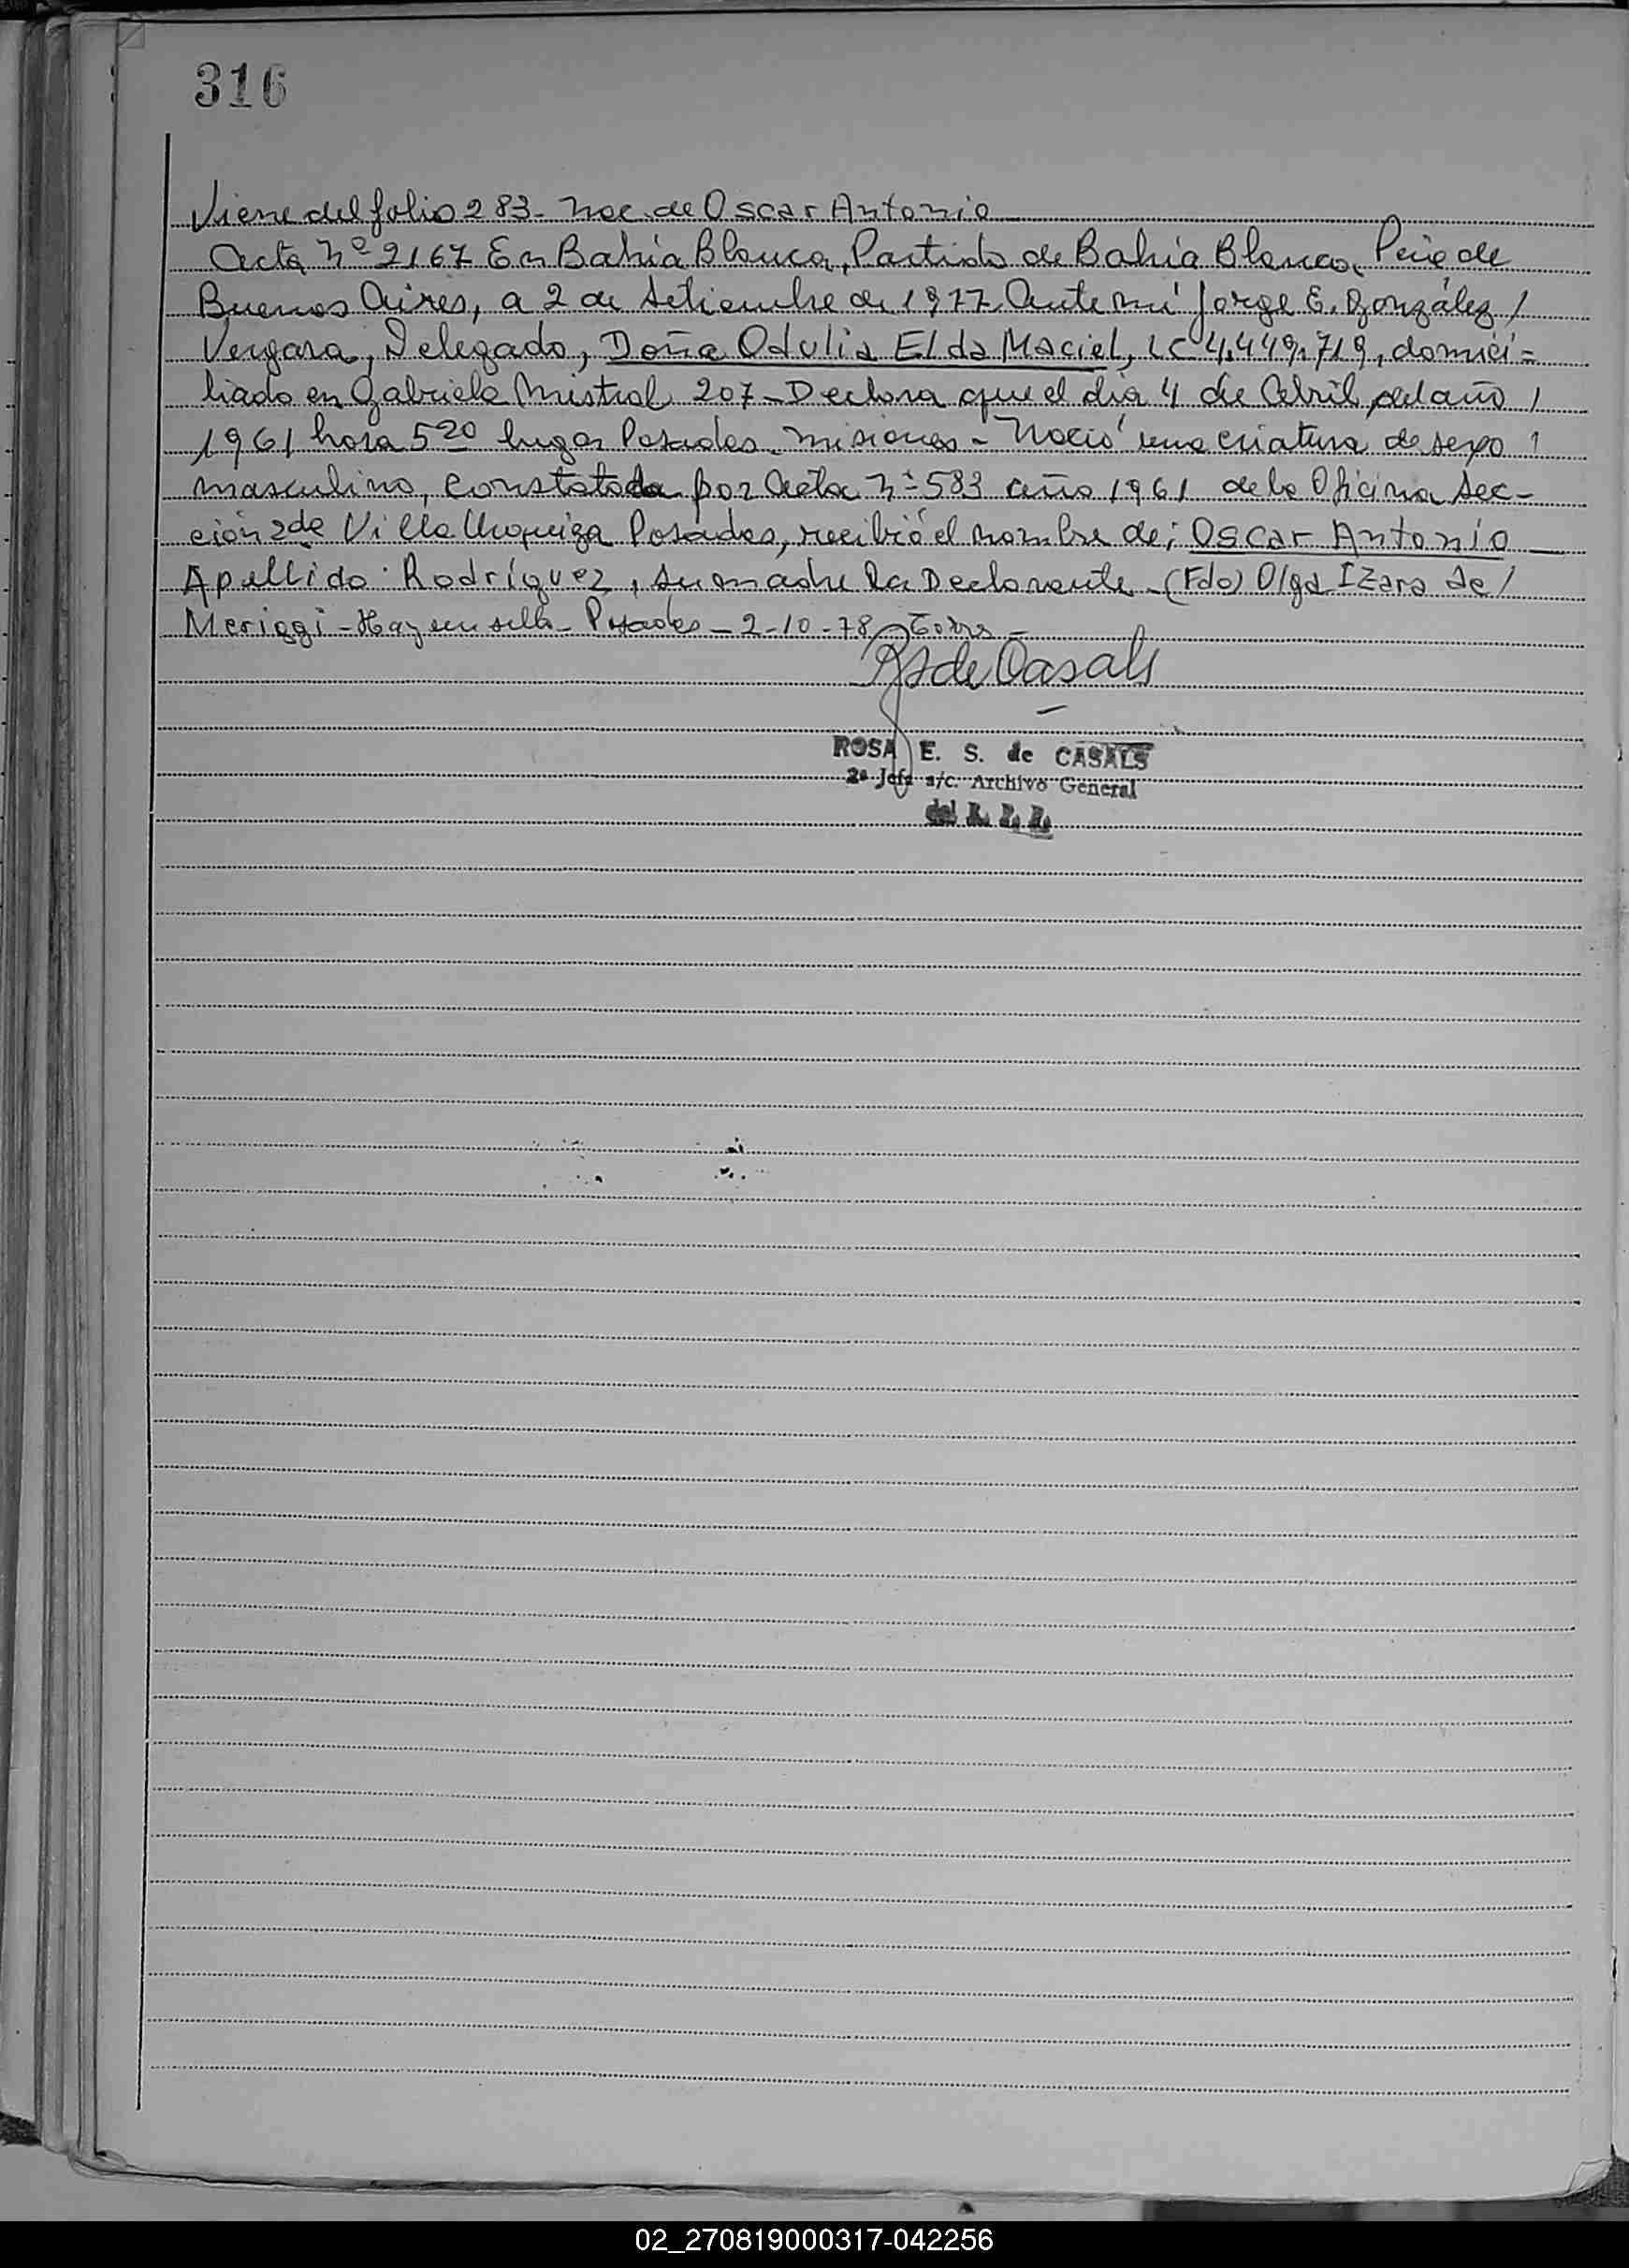 316
Viene del folio 283 - Nac. de Oscar Antonio
Acta Nº 2167 En Bahía Blanca, Partido de Bahía Blanca, Pcia de
Buenos Aires, a 2 de Setiembre de 1977 Ante mí Jorge E. González /
Vergara, Delegado, Doña Odulia Elda Maciel, LC 4.449.719, domici=
liado en Gabriela Mistral 207 - Declara que el día 4 de Abril, del año /
1961 hora 5 20 lugar Posadas. Misiones - Nació una criatura de sexo /
masculino, constatada por Acta Nº 583 año 1961 de la Oficina Sec-
ción 2da Villa Urquiza Posadas, recibió el nombre de; Oscar Antonio
Apellido: Rodríguez, su madre la Declarante - (Fdo) Olga Izara de /
Meriggi - Hay un sello - Posadas - 2-10-78
RS de Casals
ROSA E. S. de CASALS
2ª Jefa a/c. Archivo General
del R. P. P.
02_270819000317-042256